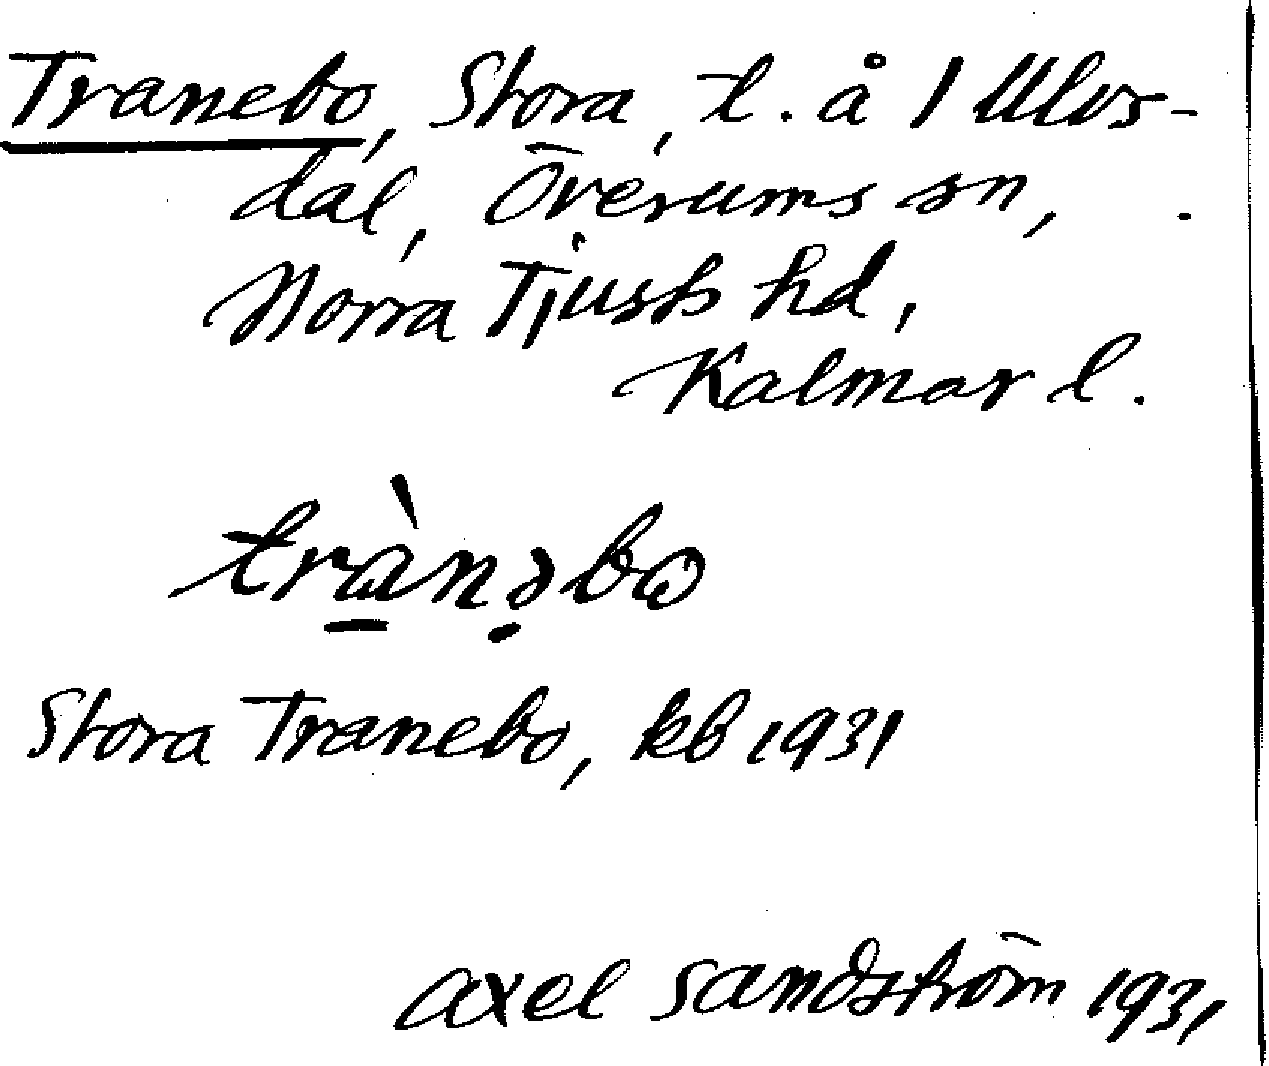 Tranebo, Stora, t. å 1 Ulvs-
dal, Överums sn,
Norra Tjusts hd,
Kalmar l.
trànəbo
Stora Tranebo, kb 1931
Axel Sandström 1931